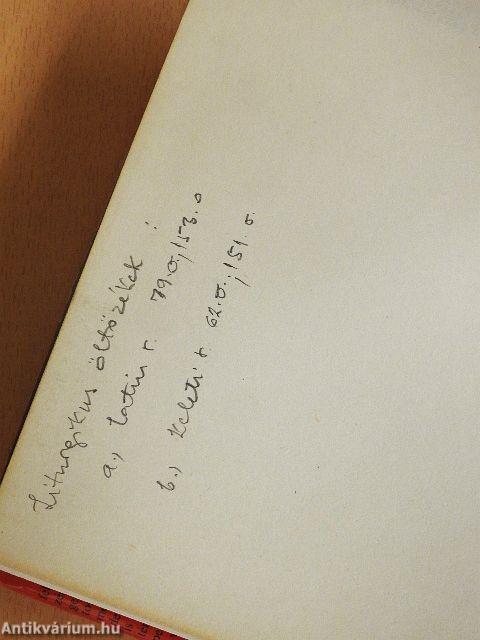 Liturgikus öltözékek :
a., latin r. 79.o., 153.o
b., keleti r. 62.o., 151.o.
Antikvárium.hu